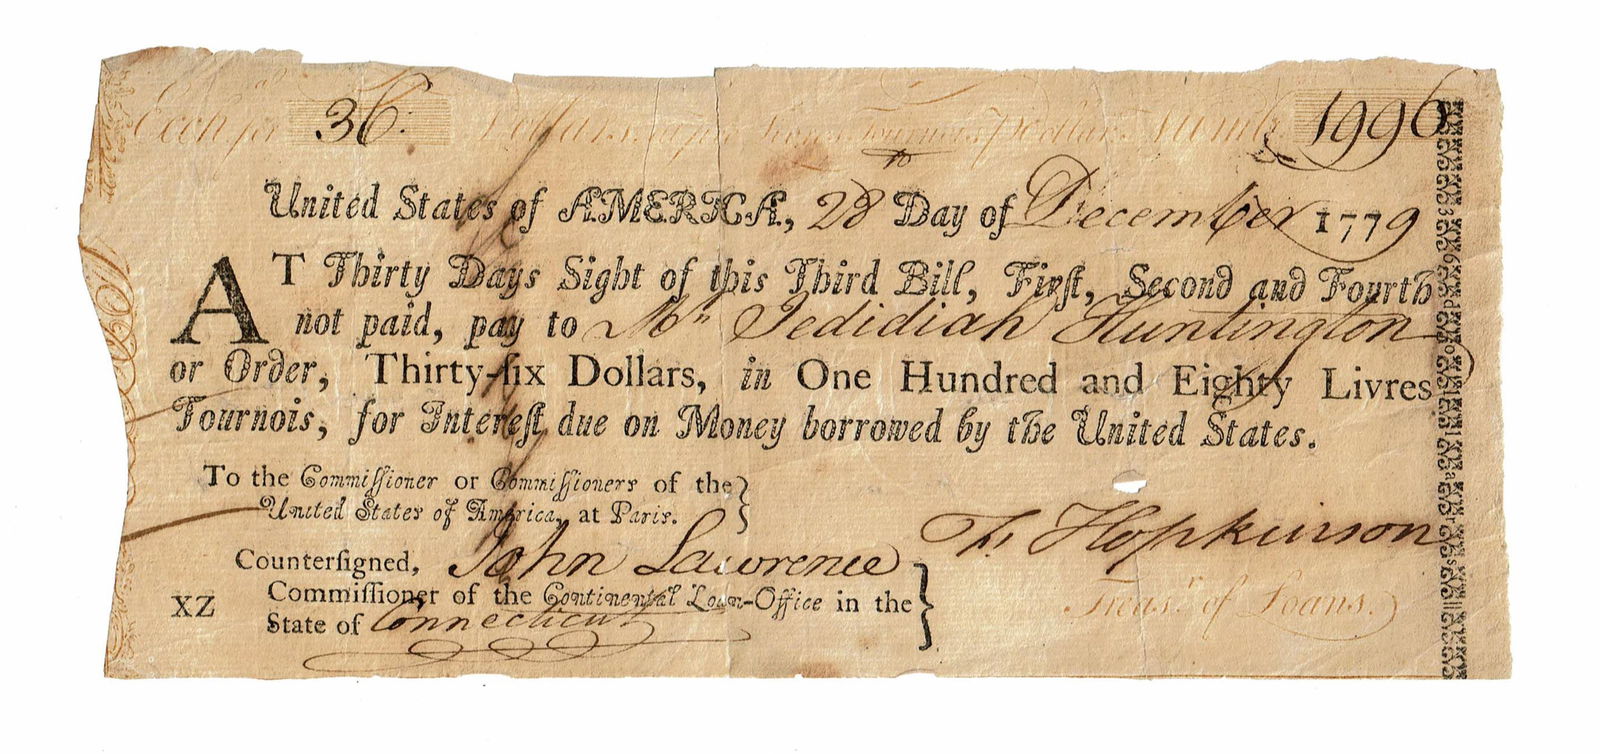 Exch for 36: Dollars, Livres Tournois, Dollar. Number 1996
United States of AMERICA, 28 Day of December 1779
AT Thirty Days Sight of this Third Bill, Firſt, Second and Fourth
not paid, pay to Mr Jedidiah Huntington
or Order, Thirty-ſix Dollars, in One Hundred and Eighty Livres
Tournois, for Intereſt due on Money borrowed by the United States.
To the Commiſſioner or Commiſſioners of the
United States of America, at Paris.
Fs Hopkinson
Treasr of Loans.
Counterſigned, John Lawrence
Commiſſioner of the Continental Loan-Office in the
State of Connecticut
XZ